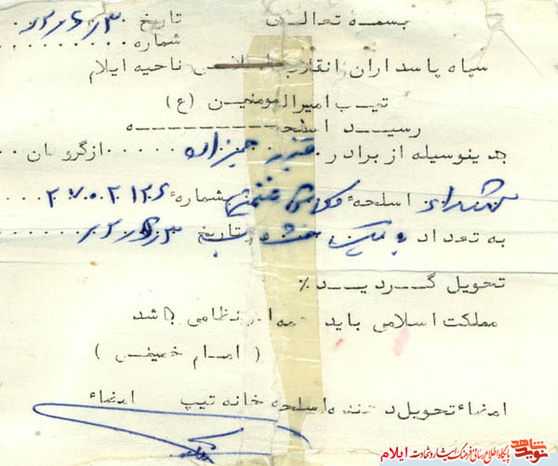 بسمه تعالی تاریخ ۶۲/۶/۳
شماره
سپاه پاسداران انقلاب ناحیه ایلام
تیپ امیرالمومنین (ع)
رسید اسلحه
بدینوسیله از برادر قنبر از گروهان
شهداء اسلحهٔ شمارهٔ
به تعداد تاریخ
تحویل گردید٪
مملکت اسلامی باید همه اش نظامی باشد
( امام خمینی )
امضاء تحویل دهنده اسلحه خانه تیپ امضاء
نوید شاهد
پایگاه اطلاع رسانی فرهنگ ایثار و شهادت ایلام